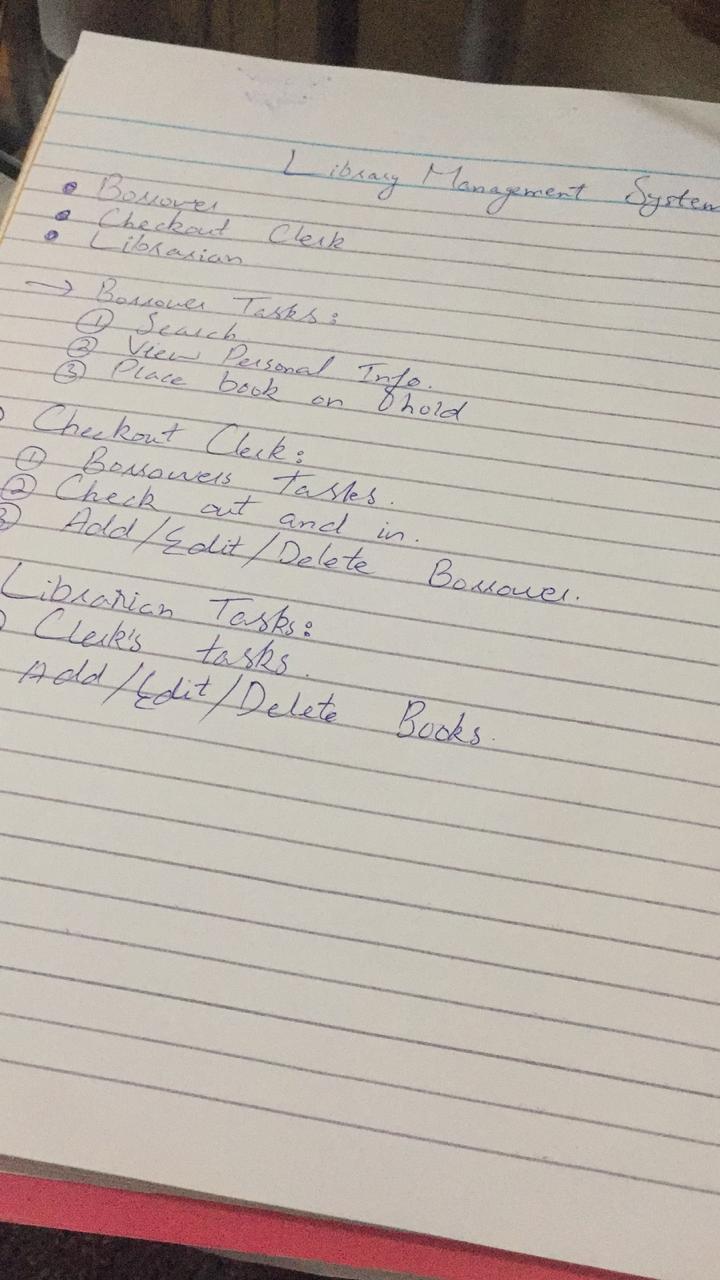 Library Management System
• Borrower
• Checkout Clerk
• Librarian
→ Borrower Tasks:
① Search
② View Personal Info.
③ Place book on hold
Checkout Clerk:
① Borrowers Tasks.
② Check out and in.
③ Add/Edit/Delete Borrower.
Librarian Tasks:
Clerk's tasks.
Add/Edit/Delete Books.